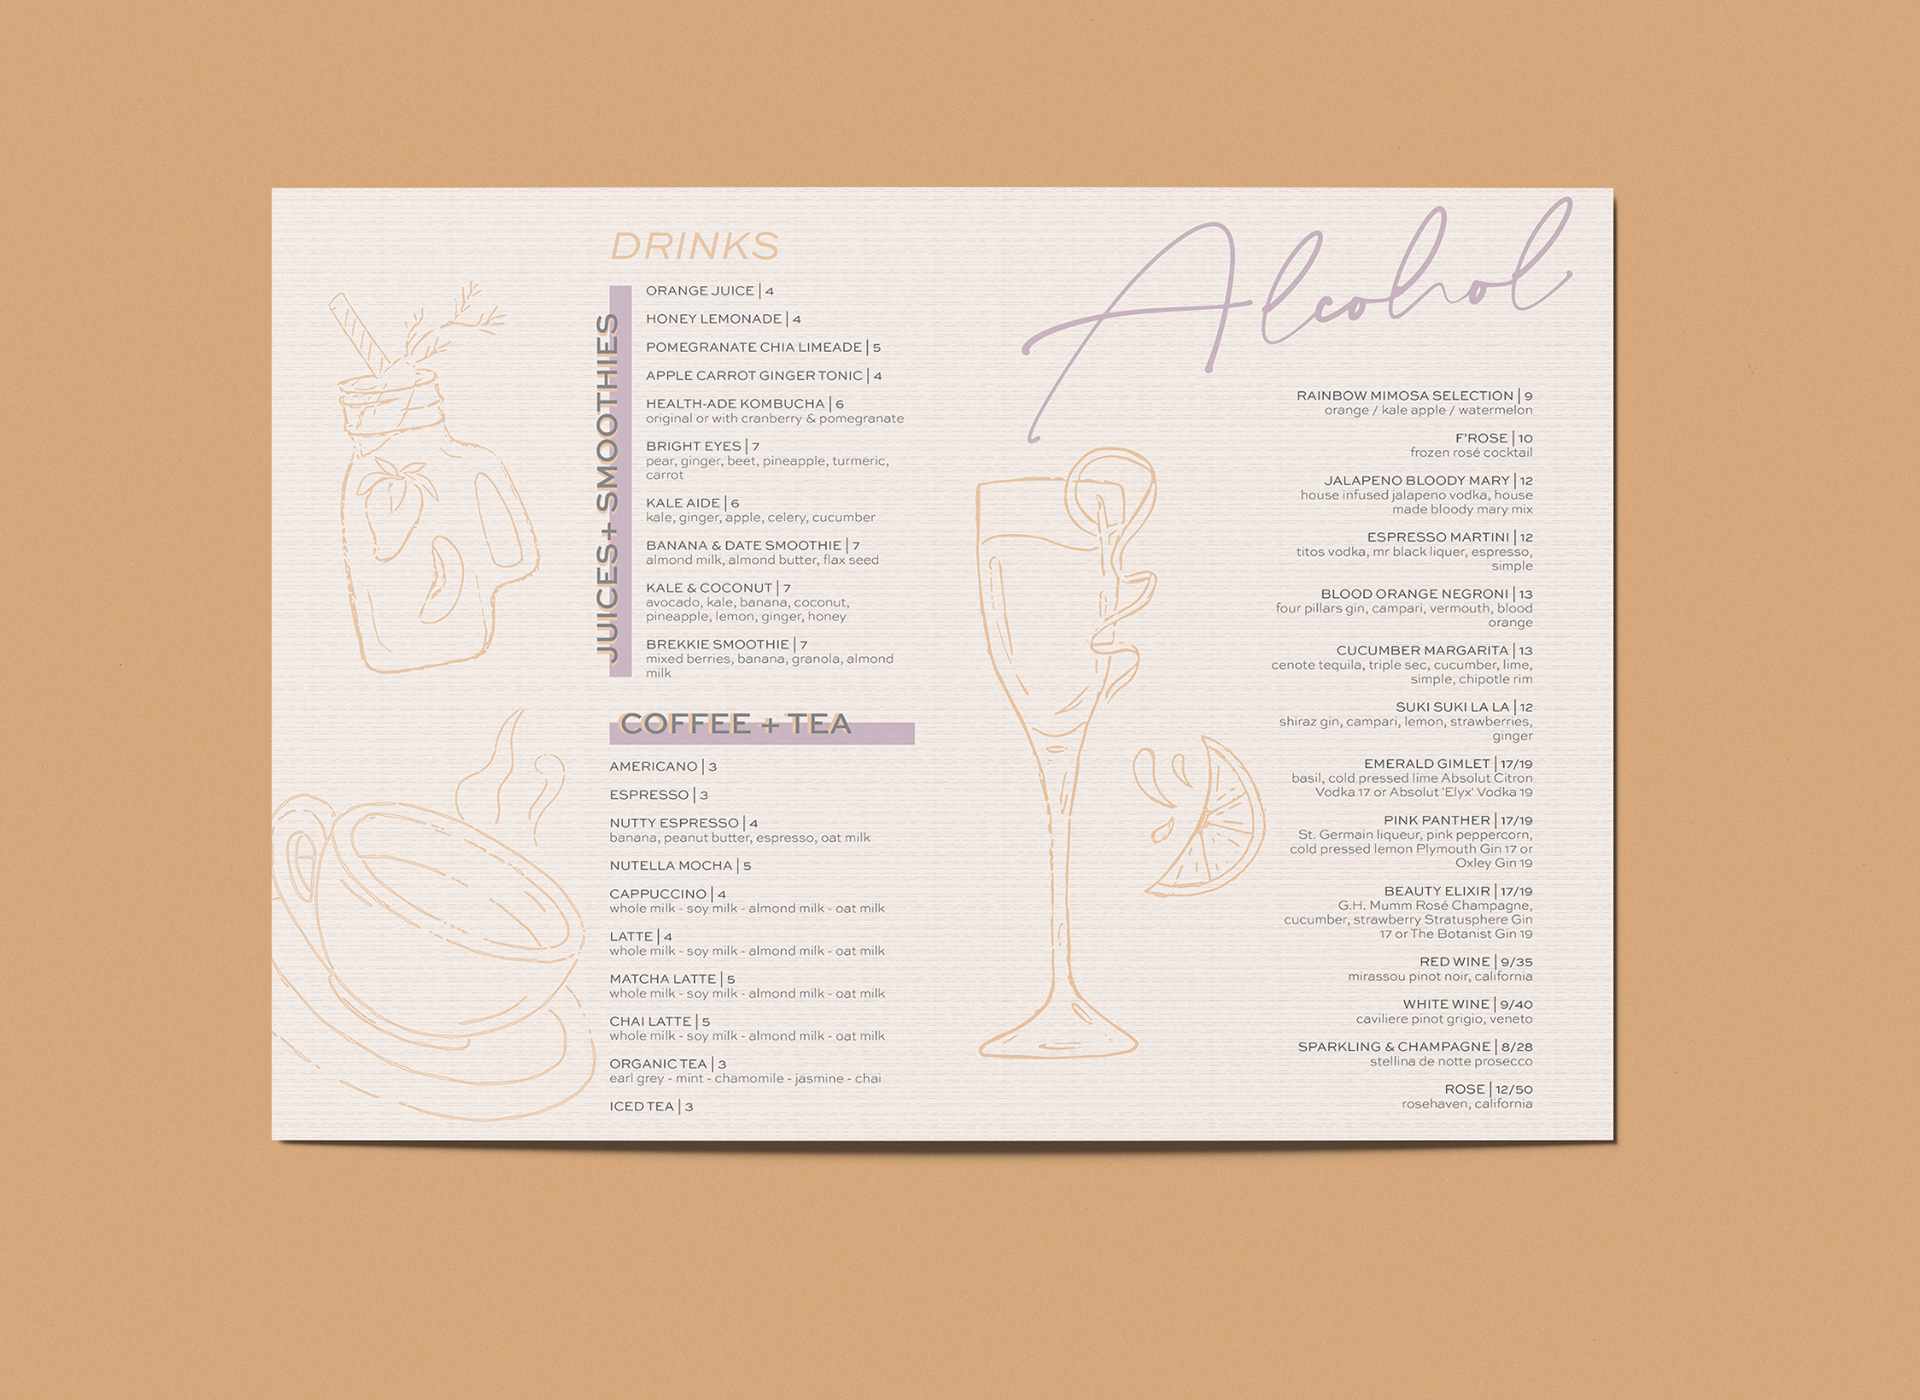 DRINKS
JUICES+ SMOOTHIES
ORANGE JUICE | 4
HONEY LEMONADE | 4
POMEGRANATE CHIA LIMEADE | 5
APPLE CARROT GINGER TONIC | 4
HEALTH-ADE KOMBUCHA | 6
original or with cranberry & pomegranate
BRIGHT EYES | 7
pear, ginger, beet, pineapple, turmeric,
carrot
KALE AIDE | 6
kale, ginger, apple, celery, cucumber
BANANA & DATE SMOOTHIE | 7
almond milk, almond butter, flax seed
KALE & COCONUT | 7
avocado, kale, banana, coconut,
pineapple, lemon, ginger, honey
BREKKIE SMOOTHIE | 7
mixed berries, banana, granola, almond
milk
COFFEE + TEA
AMERICANO | 3
ESPRESSO | 3
NUTTY ESPRESSO | 4
banana, peanut butter, espresso, oat milk
NUTELLA MOCHA | 5
CAPPUCCINO | 4
whole milk - soy milk - almond milk - oat milk
LATTE | 4
whole milk - soy milk - almond milk - oat milk
MATCHA LATTE | 5
whole milk - soy milk - almond milk - oat milk
CHAI LATTE | 5
whole milk - soy milk - almond milk - oat milk
ORGANIC TEA | 3
earl grey - mint - chamomile - jasmine - chai
ICED TEA | 3
Alcohol
RAINBOW MIMOSA SELECTION | 9
orange / kale apple / watermelon
F'ROSE | 10
frozen rosé cocktail
JALAPENO BLOODY MARY | 12
house infused jalapeno vodka, house
made bloody mary mix
ESPRESSO MARTINI | 12
titos vodka, mr black liquer, espresso,
simple
BLOOD ORANGE NEGRONI | 13
four pillars gin, campari, vermouth, blood
orange
CUCUMBER MARGARITA | 13
cenote tequila, triple sec, cucumber, lime,
simple, chipotle rim
SUKI SUKI LA LA | 12
shiraz gin, campari, lemon, strawberries,
ginger
EMERALD GIMLET | 17/19
basil, cold pressed lime Absolut Citron
Vodka 17 or Absolut 'Elyx' Vodka 19
PINK PANTHER | 17/19
St. Germain liqueur, pink peppercorn,
cold pressed lemon Plymouth Gin 17 or
Oxley Gin 19
BEAUTY ELIXIR | 17/19
G.H. Mumm Rosé Champagne,
cucumber, strawberry Stratusphere Gin
17 or The Botanist Gin 19
RED WINE | 9/35
mirassou pinot noir, california
WHITE WINE | 9/40
caviliere pinot grigio, veneto
SPARKLING & CHAMPAGNE | 8/28
stellina de notte prosecco
ROSE | 12/50
rosehaven, california